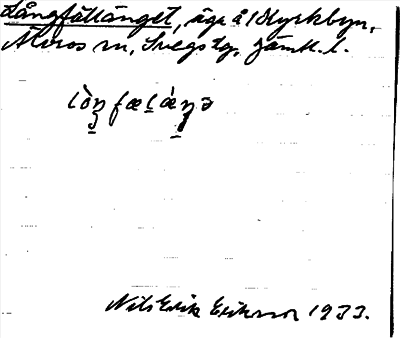 Långfältänget, äga å 1 Kyrkbyn,
Älvros sn, Svegs tg, Jämtl. l.
lòŋfæḷáŋə
Nils Erik Eriksson 1933.